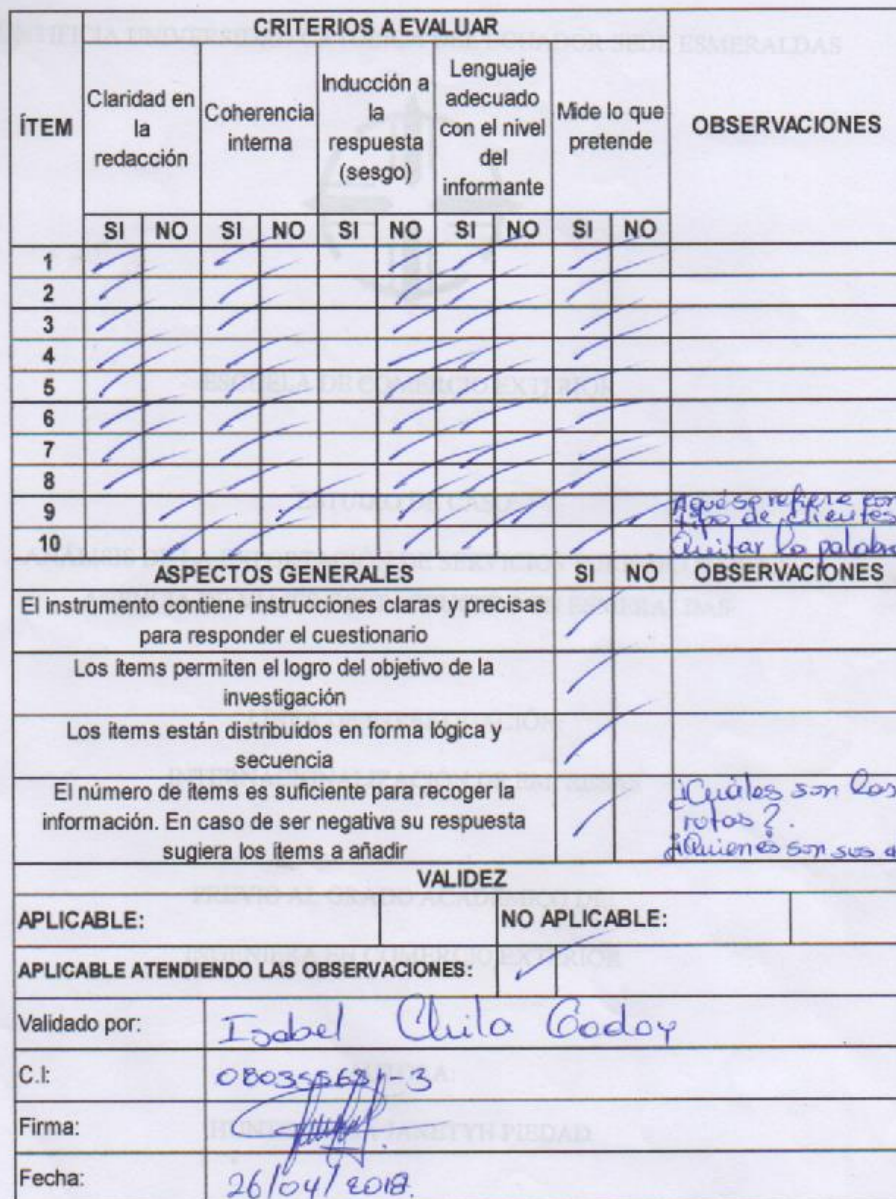 CRITERIOS A EVALUAR
ÍTEM
Claridad en la redacción
Coherencia interna
Inducción a la respuesta (sesgo)
Lenguaje adecuado con el nivel del informante
Mide lo que pretende
OBSERVACIONES
SI NO SI NO SI NO SI NO SI NO
1
2
3
4
5
6
7
8
9 Aque se refiere con
tipo de clientes
10 Quitar la palabra
ASPECTOS GENERALES SI NO OBSERVACIONES
El instrumento contiene instrucciones claras y precisas
para responder el cuestionario
Los ítems permiten el logro del objetivo de la
investigación
Los ítems están distribuidos en forma lógica y
secuencia
El número de ítems es suficiente para recoger la
información. En caso de ser negativa su respuesta
sugiera los ítems a añadir
¿Cuáles son las
rutas?.
¿Quiénes son sus
VALIDEZ
APLICABLE: NO APLICABLE:
APLICABLE ATENDIENDO LAS OBSERVACIONES:
Validado por: Isabel Chila Godoy
C.I:
Firma:
Fecha: 26/04/2018.